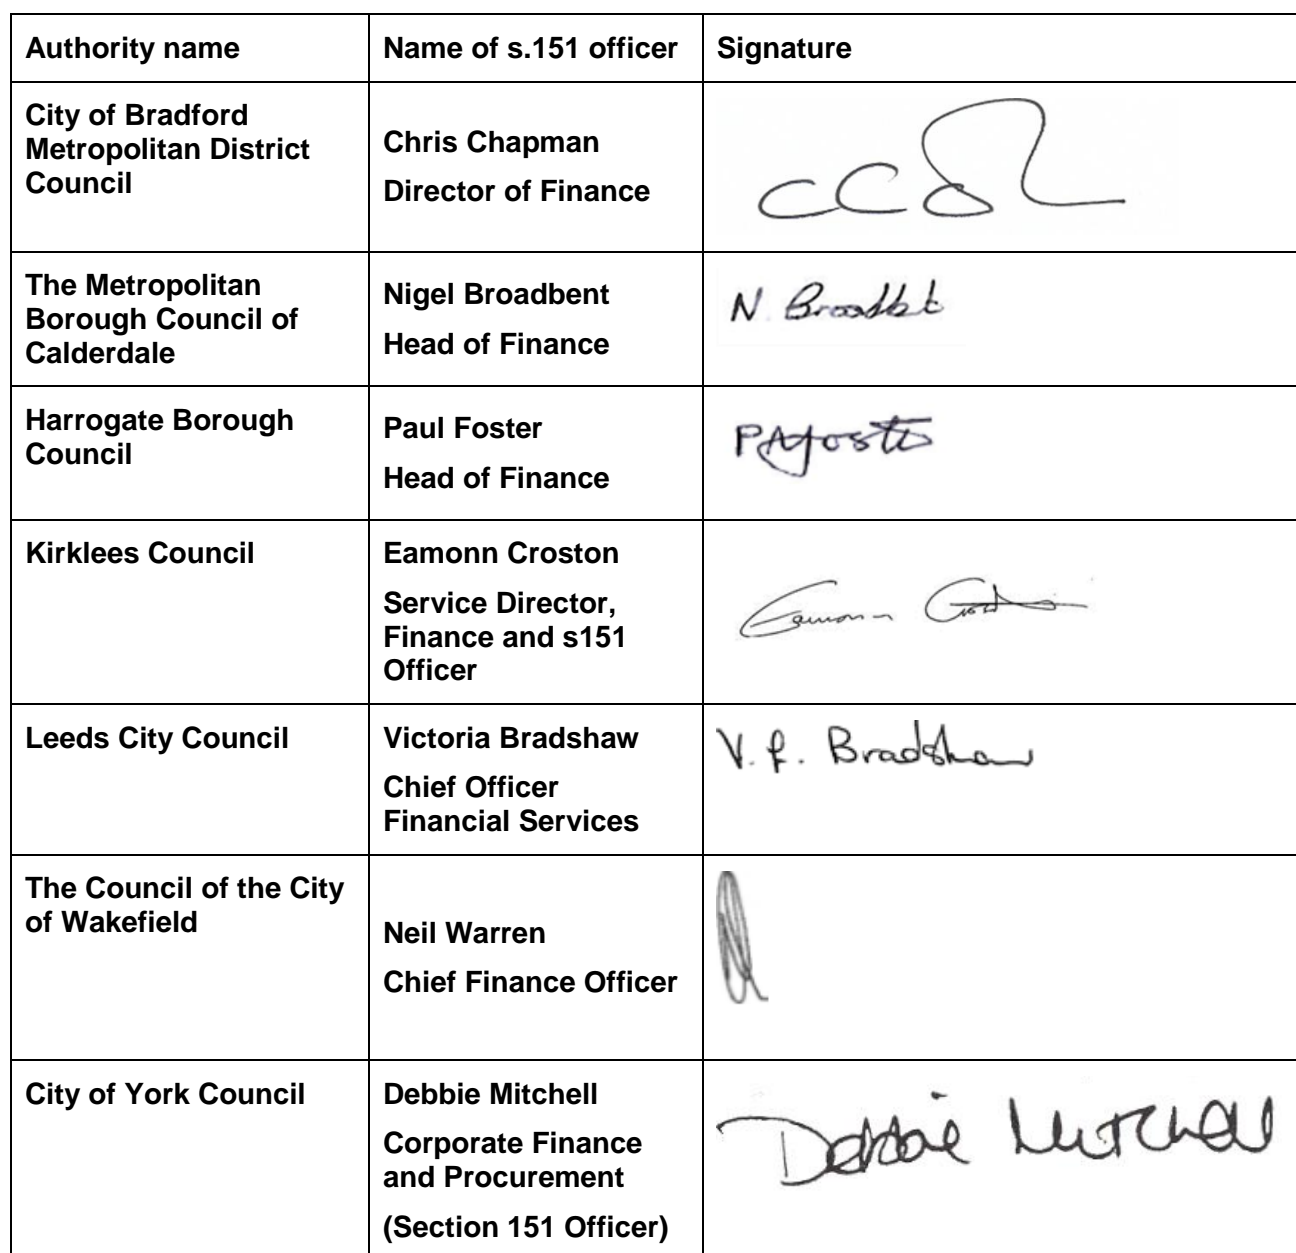 Authority name
Name of s.151 officer
Signature
City of Bradford
Metropolitan District
Council
Chris Chapman
Director of Finance
The Metropolitan
Borough Council of
Calderdale
Nigel Broadbent
Head of Finance
N. Broadbt
Harrogate Borough
Council
Paul Foster
Head of Finance
PAFoster
Kirklees Council
Eamonn Croston
Service Director,
Finance and s151
Officer
Eamonn
Leeds City Council
Victoria Bradshaw
Chief Officer
Financial Services
V. Bradshaw
The Council of the City
of Wakefield
Neil Warren
Chief Finance Officer
City of York Council
Debbie Mitchell
Corporate Finance
and Procurement
(Section 151 Officer)
Debbie Mitchell